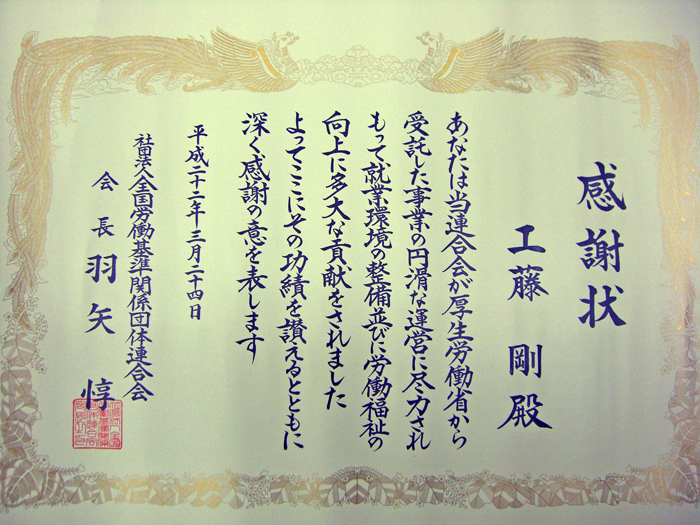 感謝状
工藤 剛 殿
あなたは当連合会が厚生労働省から
受託した事業の円滑な運営に尽力され
もって就業環境の整備並びに労働福祉の
向上に多大な貢献をされました
よってここにその功績を讃えるとともに
深く感謝の意を表します
平成二十二年三月二十四日
社団法人全国労働基準関係団体連合会
会長 羽矢 惇